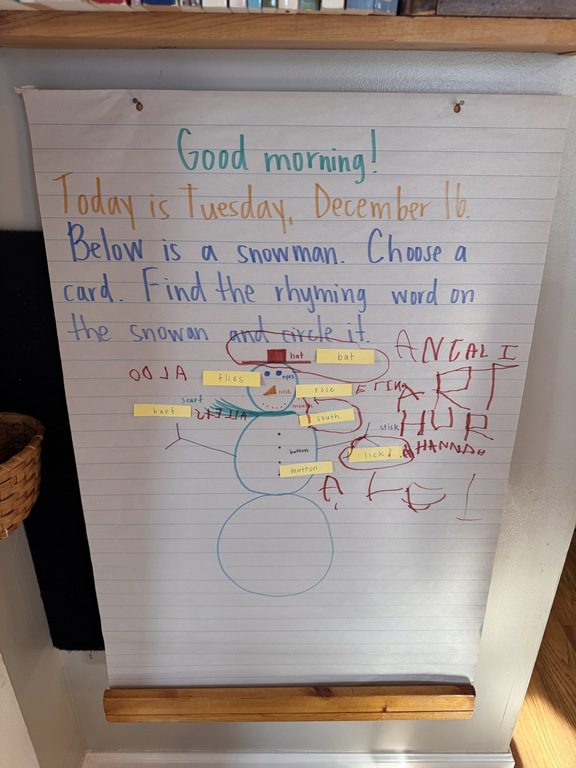 Good morning!
Today is Tuesday, December 16.
Below is a snowman. Choose a
card. Find the rhyming word on
the snowan and circle it.
hat bat ANJALI
flies eyes
nose rose ART
scarf barf mouth south HUR
stick HANNAH
button lick!
mutton